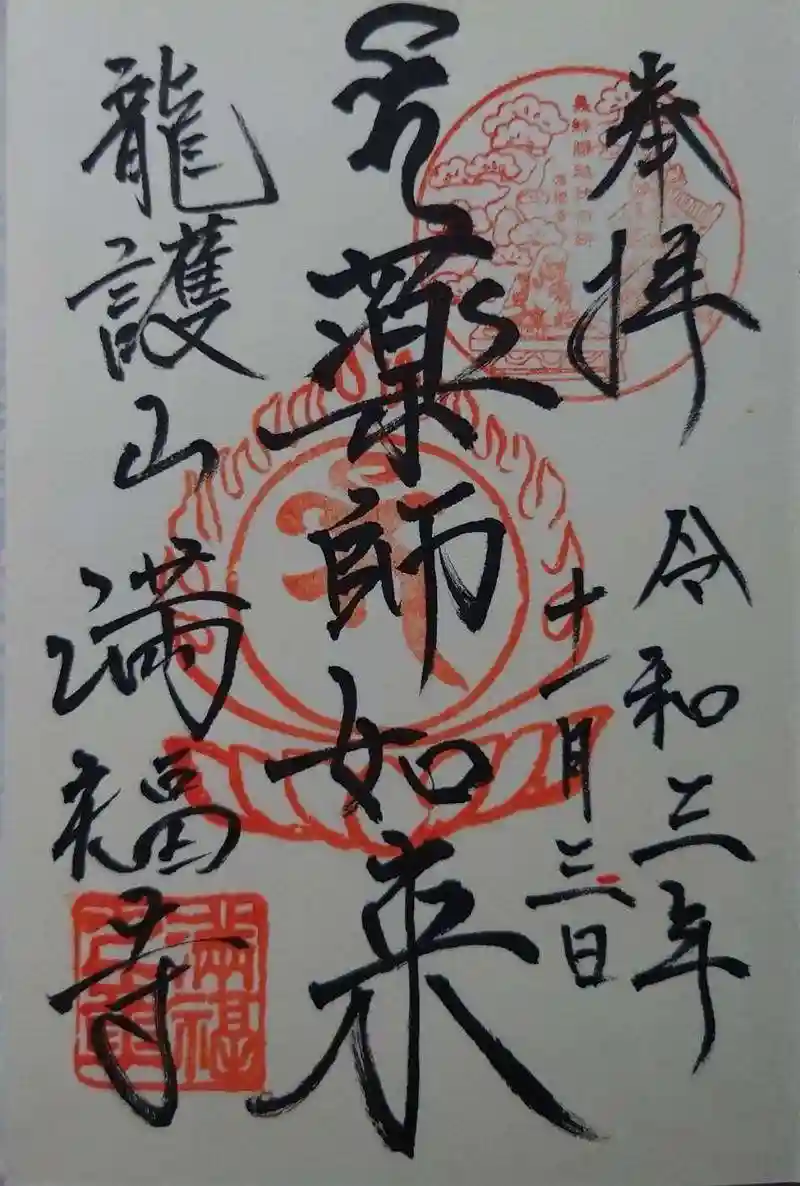 奉拝
令和三年
十一月三日
薬師如来
龍護山
満福寺